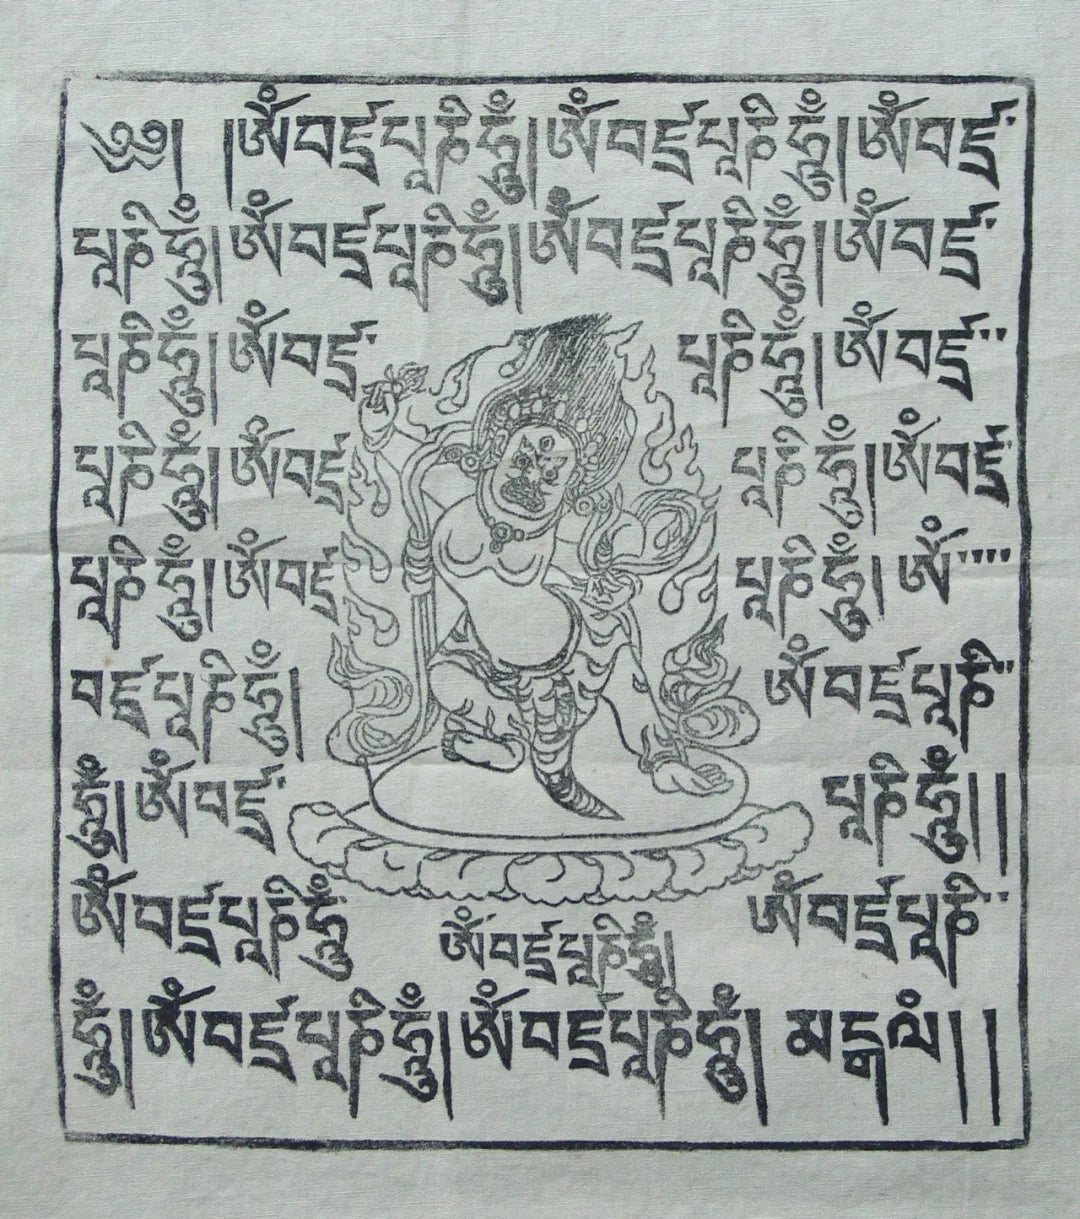 ༄༅། །ཨོཾབཛྲཔཱཎིཧཱུྃ།ཨོཾབཛྲཔཱཎིཧཱུྃ།ཨོཾབཛྲ་
པཱཎིཧཱུྃ།ཨོཾབཛྲཔཱཎིཧཱུྃ།ཨོཾབཛྲཔཱཎིཧཱུྃ།ཨོཾབཛྲ་
པཱཎིཧཱུྃ།ཨོཾབཛྲ་ པཱཎིཧཱུྃ།ཨོཾབཛྲ་་
པཱཎིཧཱུྃ།ཨོཾབཛྲ པཱཎིཧཱུྃ།ཨོཾབཛྲ་
པཱཎིཧཱུྃ།ཨོཾབཛྲ པཱཎིཧཱུྃ། ཨོཾ་་་་
བཛྲཔཱཎིཧཱུྃ། ཨོཾབཛྲཔཱཎི་་
ཧཱུྃ།ཨོཾབཛྲ་ པཱཎིཧཱུྃ། །
ཨོཾབཛྲཔཱཎིཧཱུྃ ཨོཾབཛྲཔཱཎི་་
ཨོཾབཛྲཔཱཎིཧཱུྃ།
ཧཱུྃ།ཨོཾབཛྲཔཱཎིཧཱུྃ།ཨོཾབཛྲཔཱཎིཧཱུྃ། མངྒལཾ། །